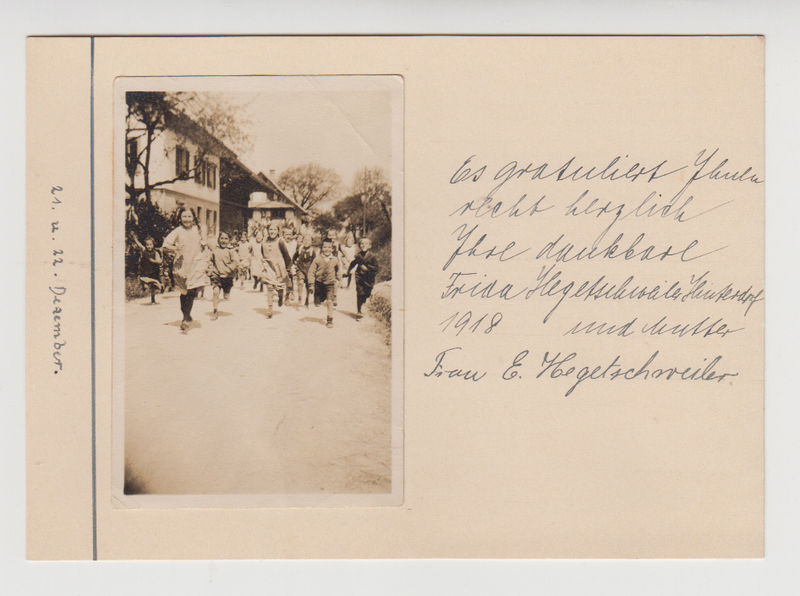 21. u. 22. Dezember.
Es gratuliert Ihnen
recht herzlich
Ihre dankbare
Frida Hegetschweiler Hinterdorf
1918 und Mutter
Frau E. Hegetschweiler.